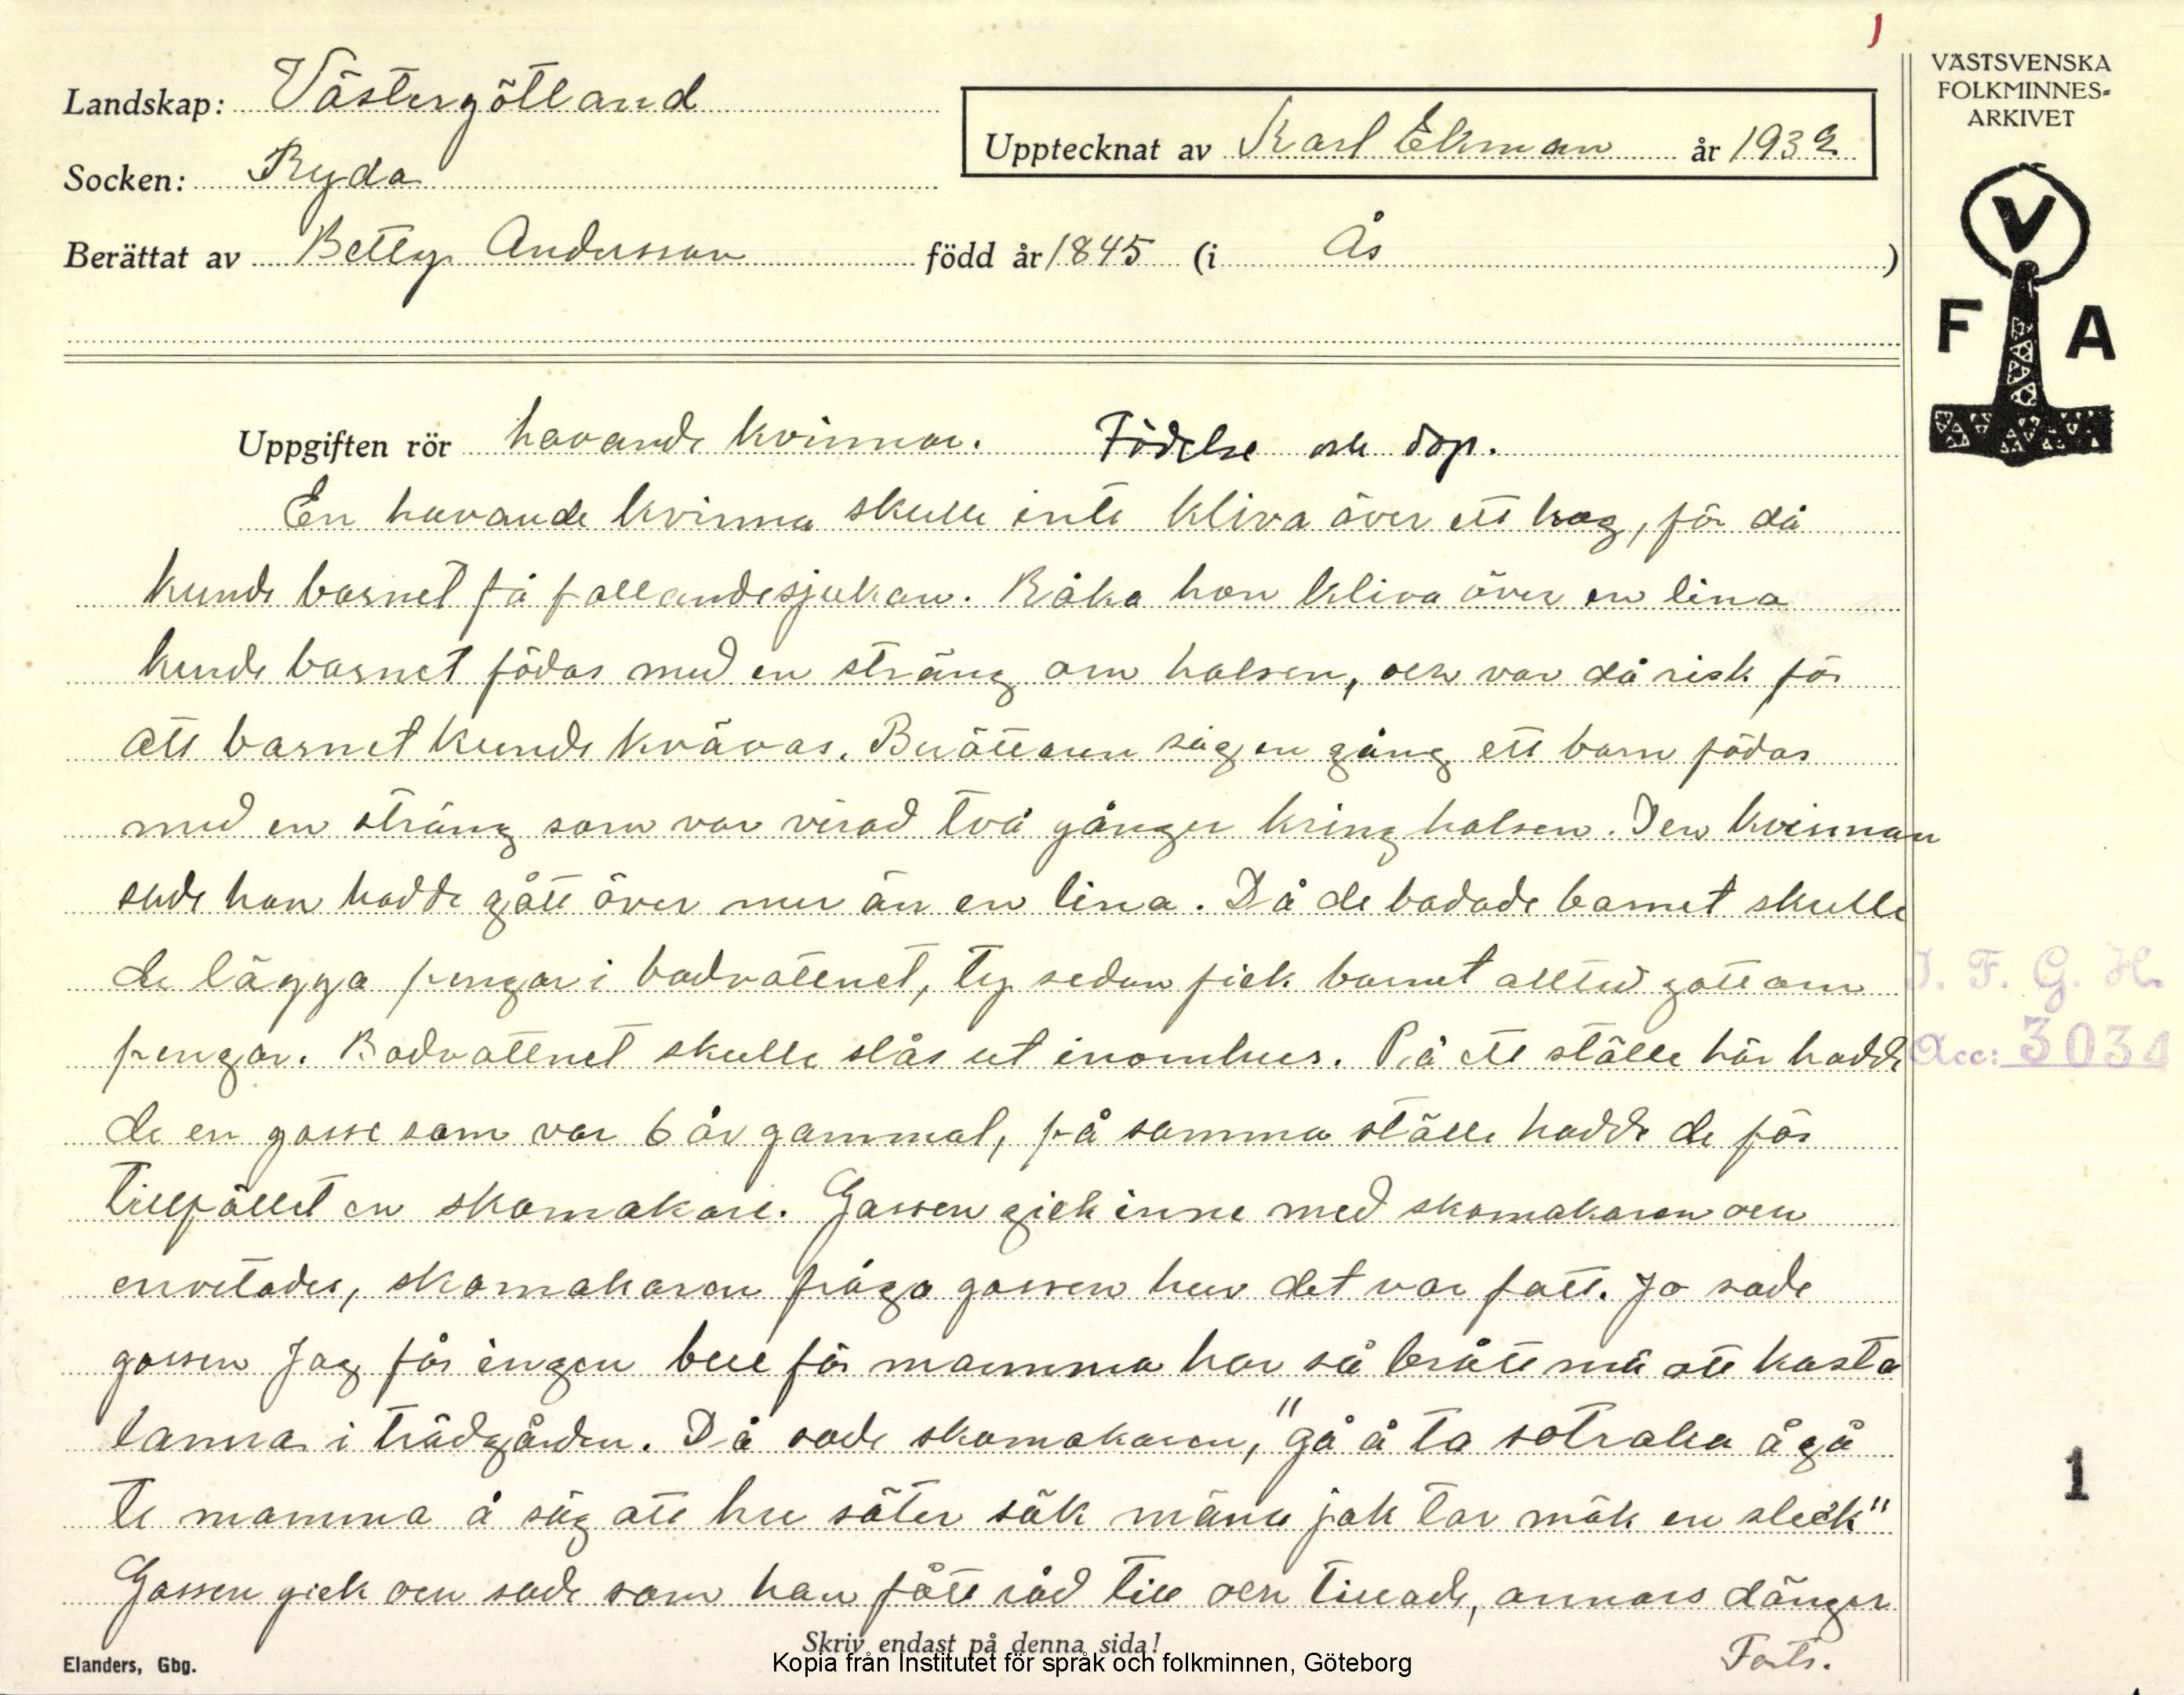 1
VÄSTSVENSKA
FOLKMINNES-
ARKIVET
Landskap: Västergötland
Upptecknat av Karl Ekman år 1932
Socken: Ryda
Berättat av Betty Andersson född år 1845 (i Ås )
V
F A
Uppgiften rör havande kvinnor. Födelse och dop.
En havande kvinna skulle inte kliva över ett hag, för då
kunde barnet få fallandesjukan. Råka hon kliva över en lina
kunde barnet födas med en sträng om halsen, och var då risk för
att barnet kunde kvävas. Berätteren såg en gång ett barn födas
med en sträng som var virad två gånger kring halsen. Den kvinnan
sade hon hadde gått över mer än en lina. Då de badade barnet skulle
de lägga pengar i badvattenet, ty sedan fick barnet alltid gott om
pengar. Badvattnet skulle slås ut inomhus. På ett ställe här hadde
de en gosse som var 6 år gammal, på samma ställe hadde de för
tillfället en skomakare. Gossen gick inne med skomakaren och
skomakaren fråga gossen hur det var fatt. Jo sade
gossen Jag får ingen bulle för mamma har så brått må att kasta
i trädgården. Då sade skomakaren, "gå å ta sotraka å gå
te mamma å säg att hu säter säk jak tar mäk en släk"
Gossen gick och sade som han fått råd till och tillade, annars dänger
Forts.
I. F. G. H.
Acc: 3034
1
Skriv endast på denna sida!
Elanders, Gbg.
Kopia från Institutet för språk och folkminnen, Göteborg